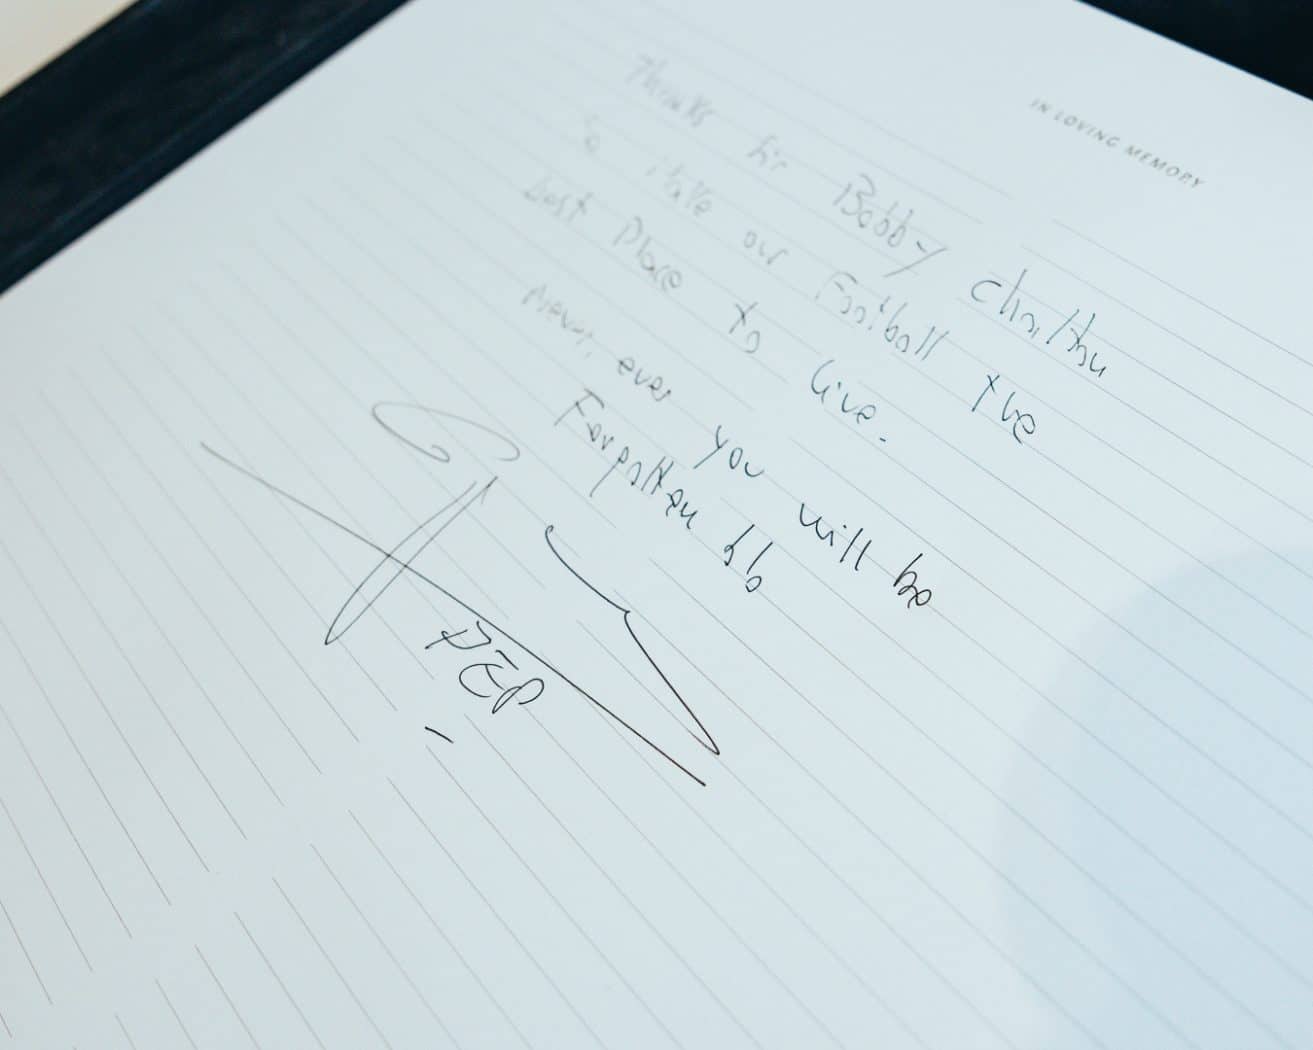 IN LOVING MEMORY
Thanks for Bobby Charlton
to make our Football the
best Place to live.
Never, ever you will be
Forgotten
PEP